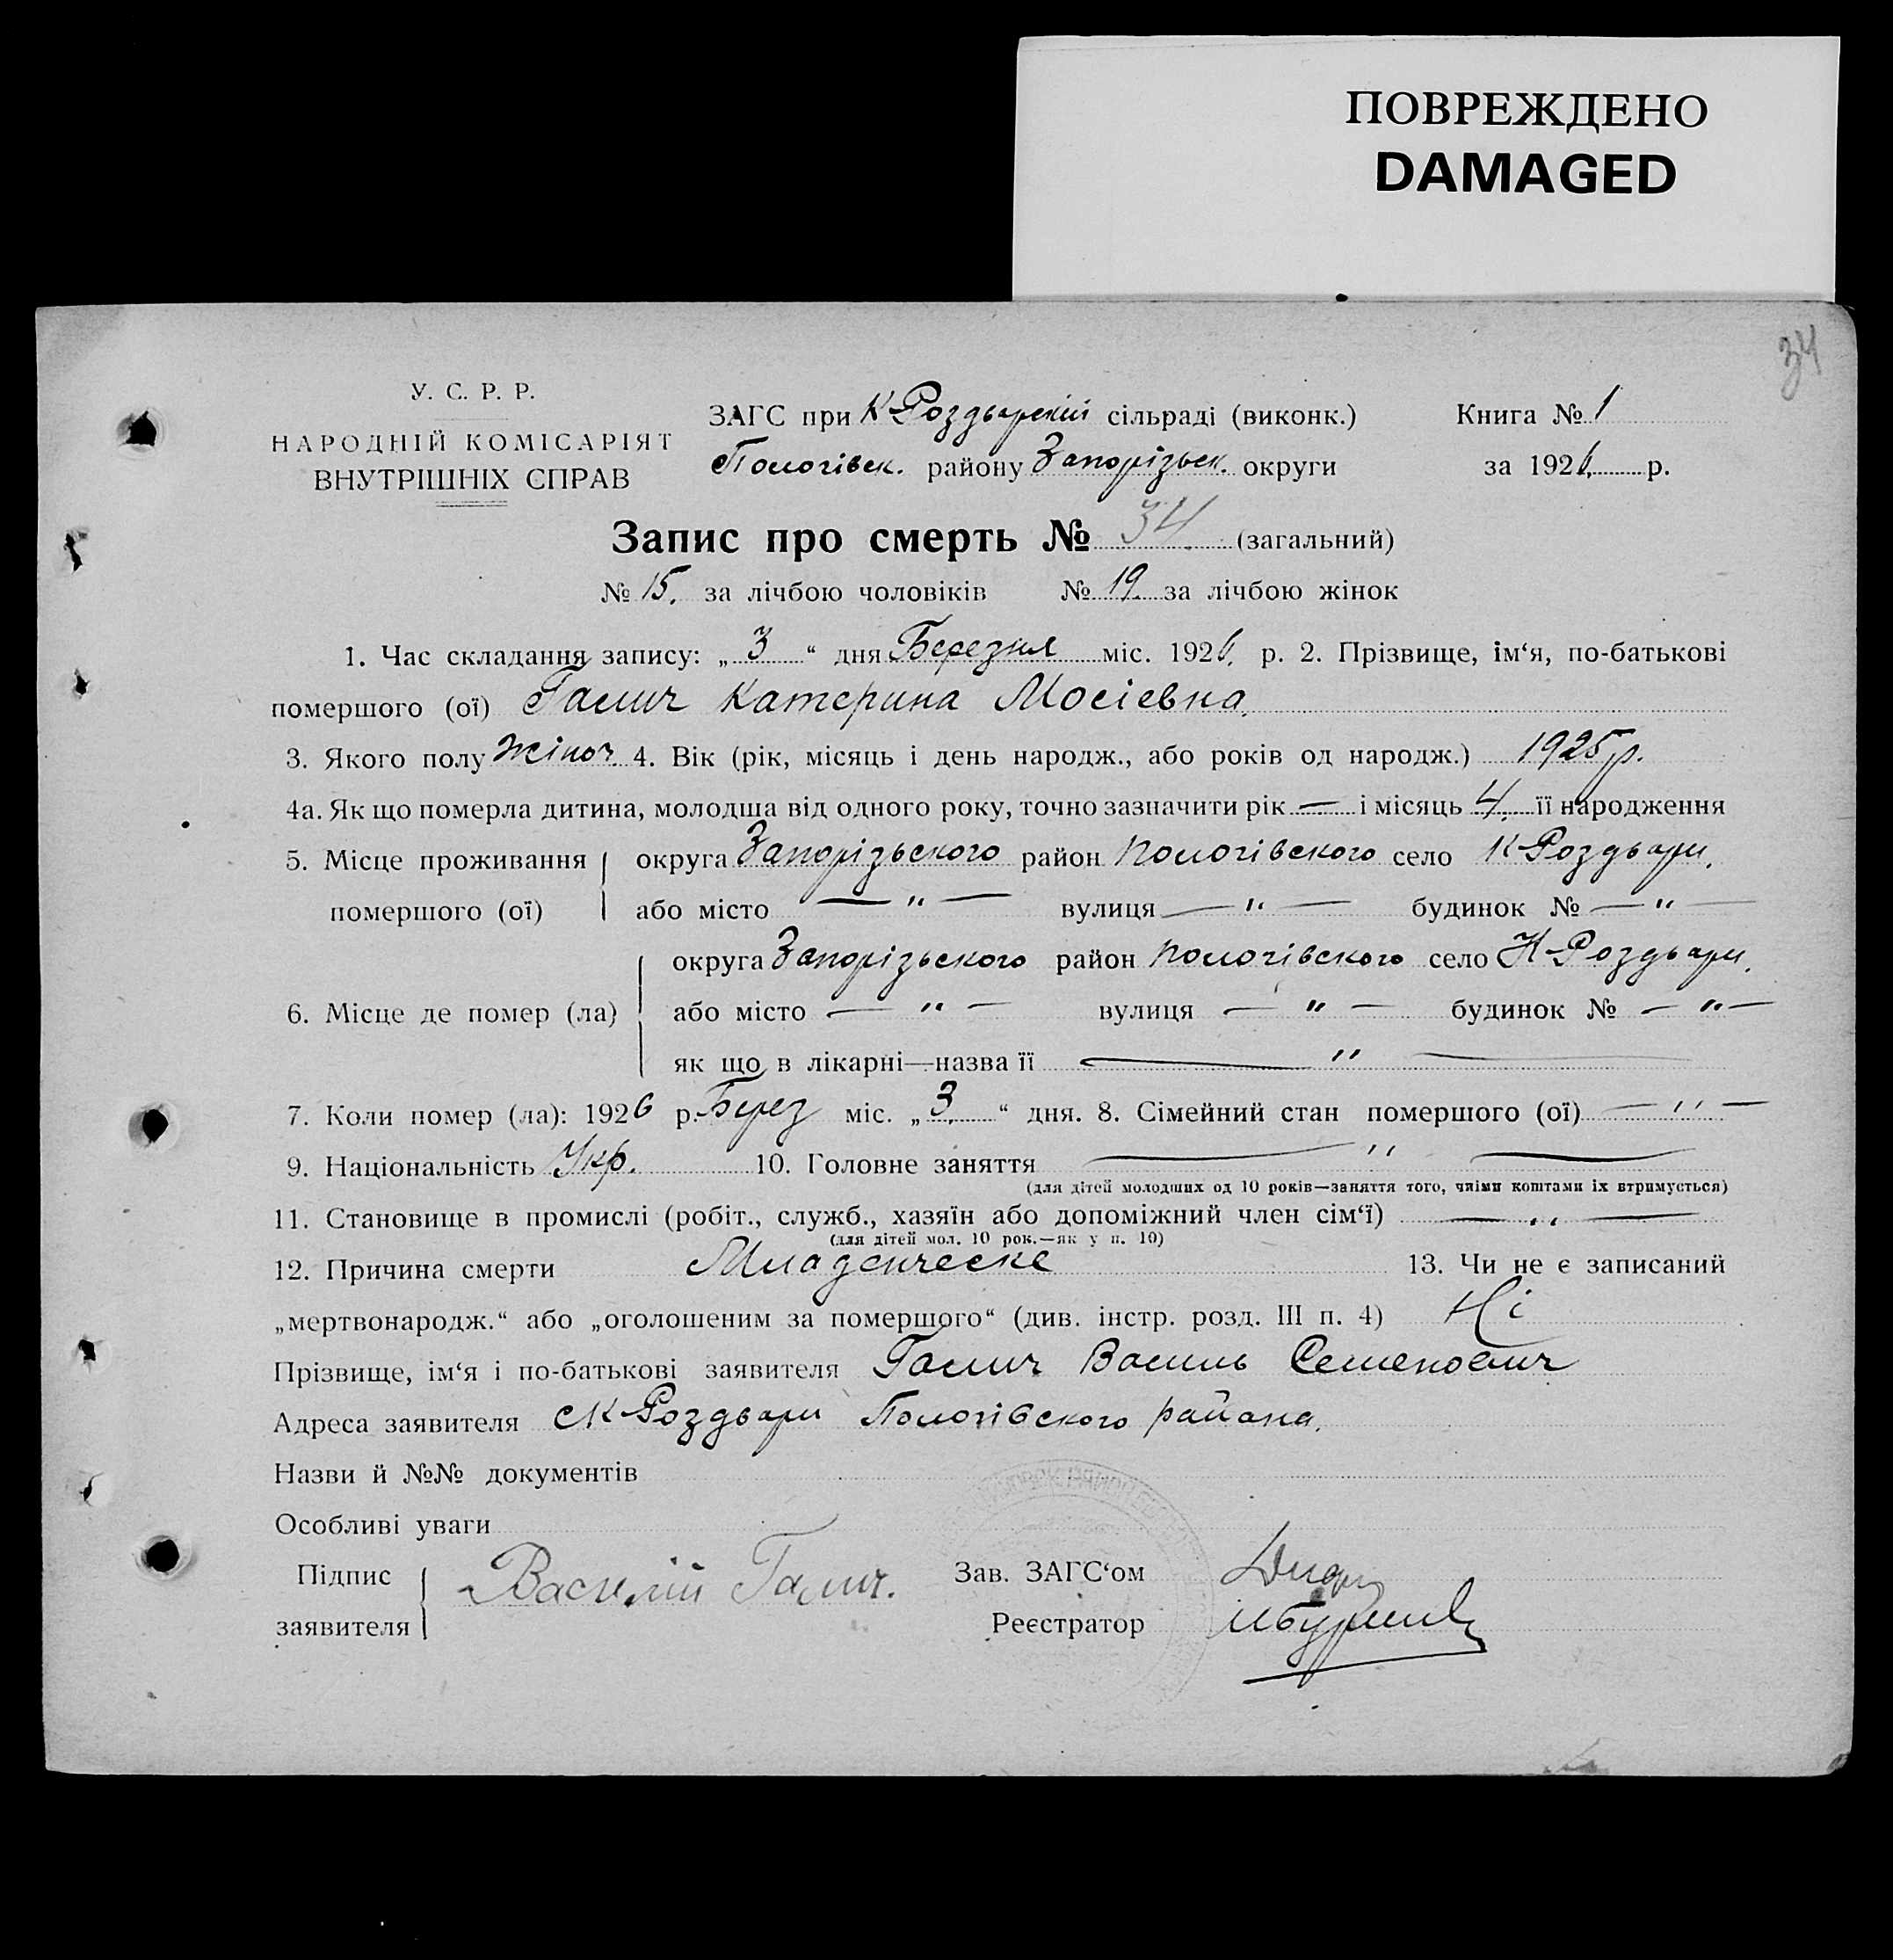 ПОВРЕЖДЕНО
DAMAGED
34
У. С. Р. Р.
НАРОДНІЙ КОМІСАРІЯТ
ВНУТРІШНІХ СПРАВ
ЗАГС при К-Роздорскій сільраді (виконк.) Книга № 1
Пологівск. району Запорізьск. округи за 1926. р.
Запис про смерть № 34. (загальний)
№ 15. за лічбою чоловіків № 19. за лічбою жінок
1. Час складання запису: „ 3 “ дня Березня міс. 1926. р. 2. Прізвище, ім‘я, по-батькові
помершого (ої) Галич Катерина Мосієвна.
3. Якого полу жіноч. 4. Вік (рік, місяць і день народж., або років од народж.) 1925 р.
4а. Як що померла дитина, молодша від одного року, точно зазначити рік — і місяць 4. її народження
5. Місце проживання округа Запорізьского район Пологівского село К-Роздори.
помершого (ої) або місто — " — вулиця — " — будинок № — " —
округа Запорізьского район Пологівского село К-Роздори.
6. Місце де помер (ла) або місто — " — вулиця — " — будинок № — " —
як що в лікарні—назва її — " —
7. Коли помер (ла): 1926 р. Берез міс. „ 3. “ дня. 8. Сімейний стан помершого (ої) — " —
9. Національність Укр. 10. Головне заняття — " —
(для дітей молодших од 10 років—заняття того, чиїми коштами їх втримується)
11. Становище в промислі (робіт., служб., хазяїн або допоміжний член сім‘ї) — " —
(для дітей мол. 10 рок.—як у п. 10)
12. Причина смерти Младенческе 13. Чи не є записаний
„мертвонародж.“ або „оголошеним за помершого“ (див. інстр. розд. III п. 4) Ні
Прізвище, ім‘я і по-батькові заявителя Галич Василь Семенович
Адреса заявителя с К-Роздори Пологівского района.
Назви й №№ документів
Особливі уваги
Підпис
заявителя Василій Галич.
Зав. ЗАГС‘ом
Реєстратор